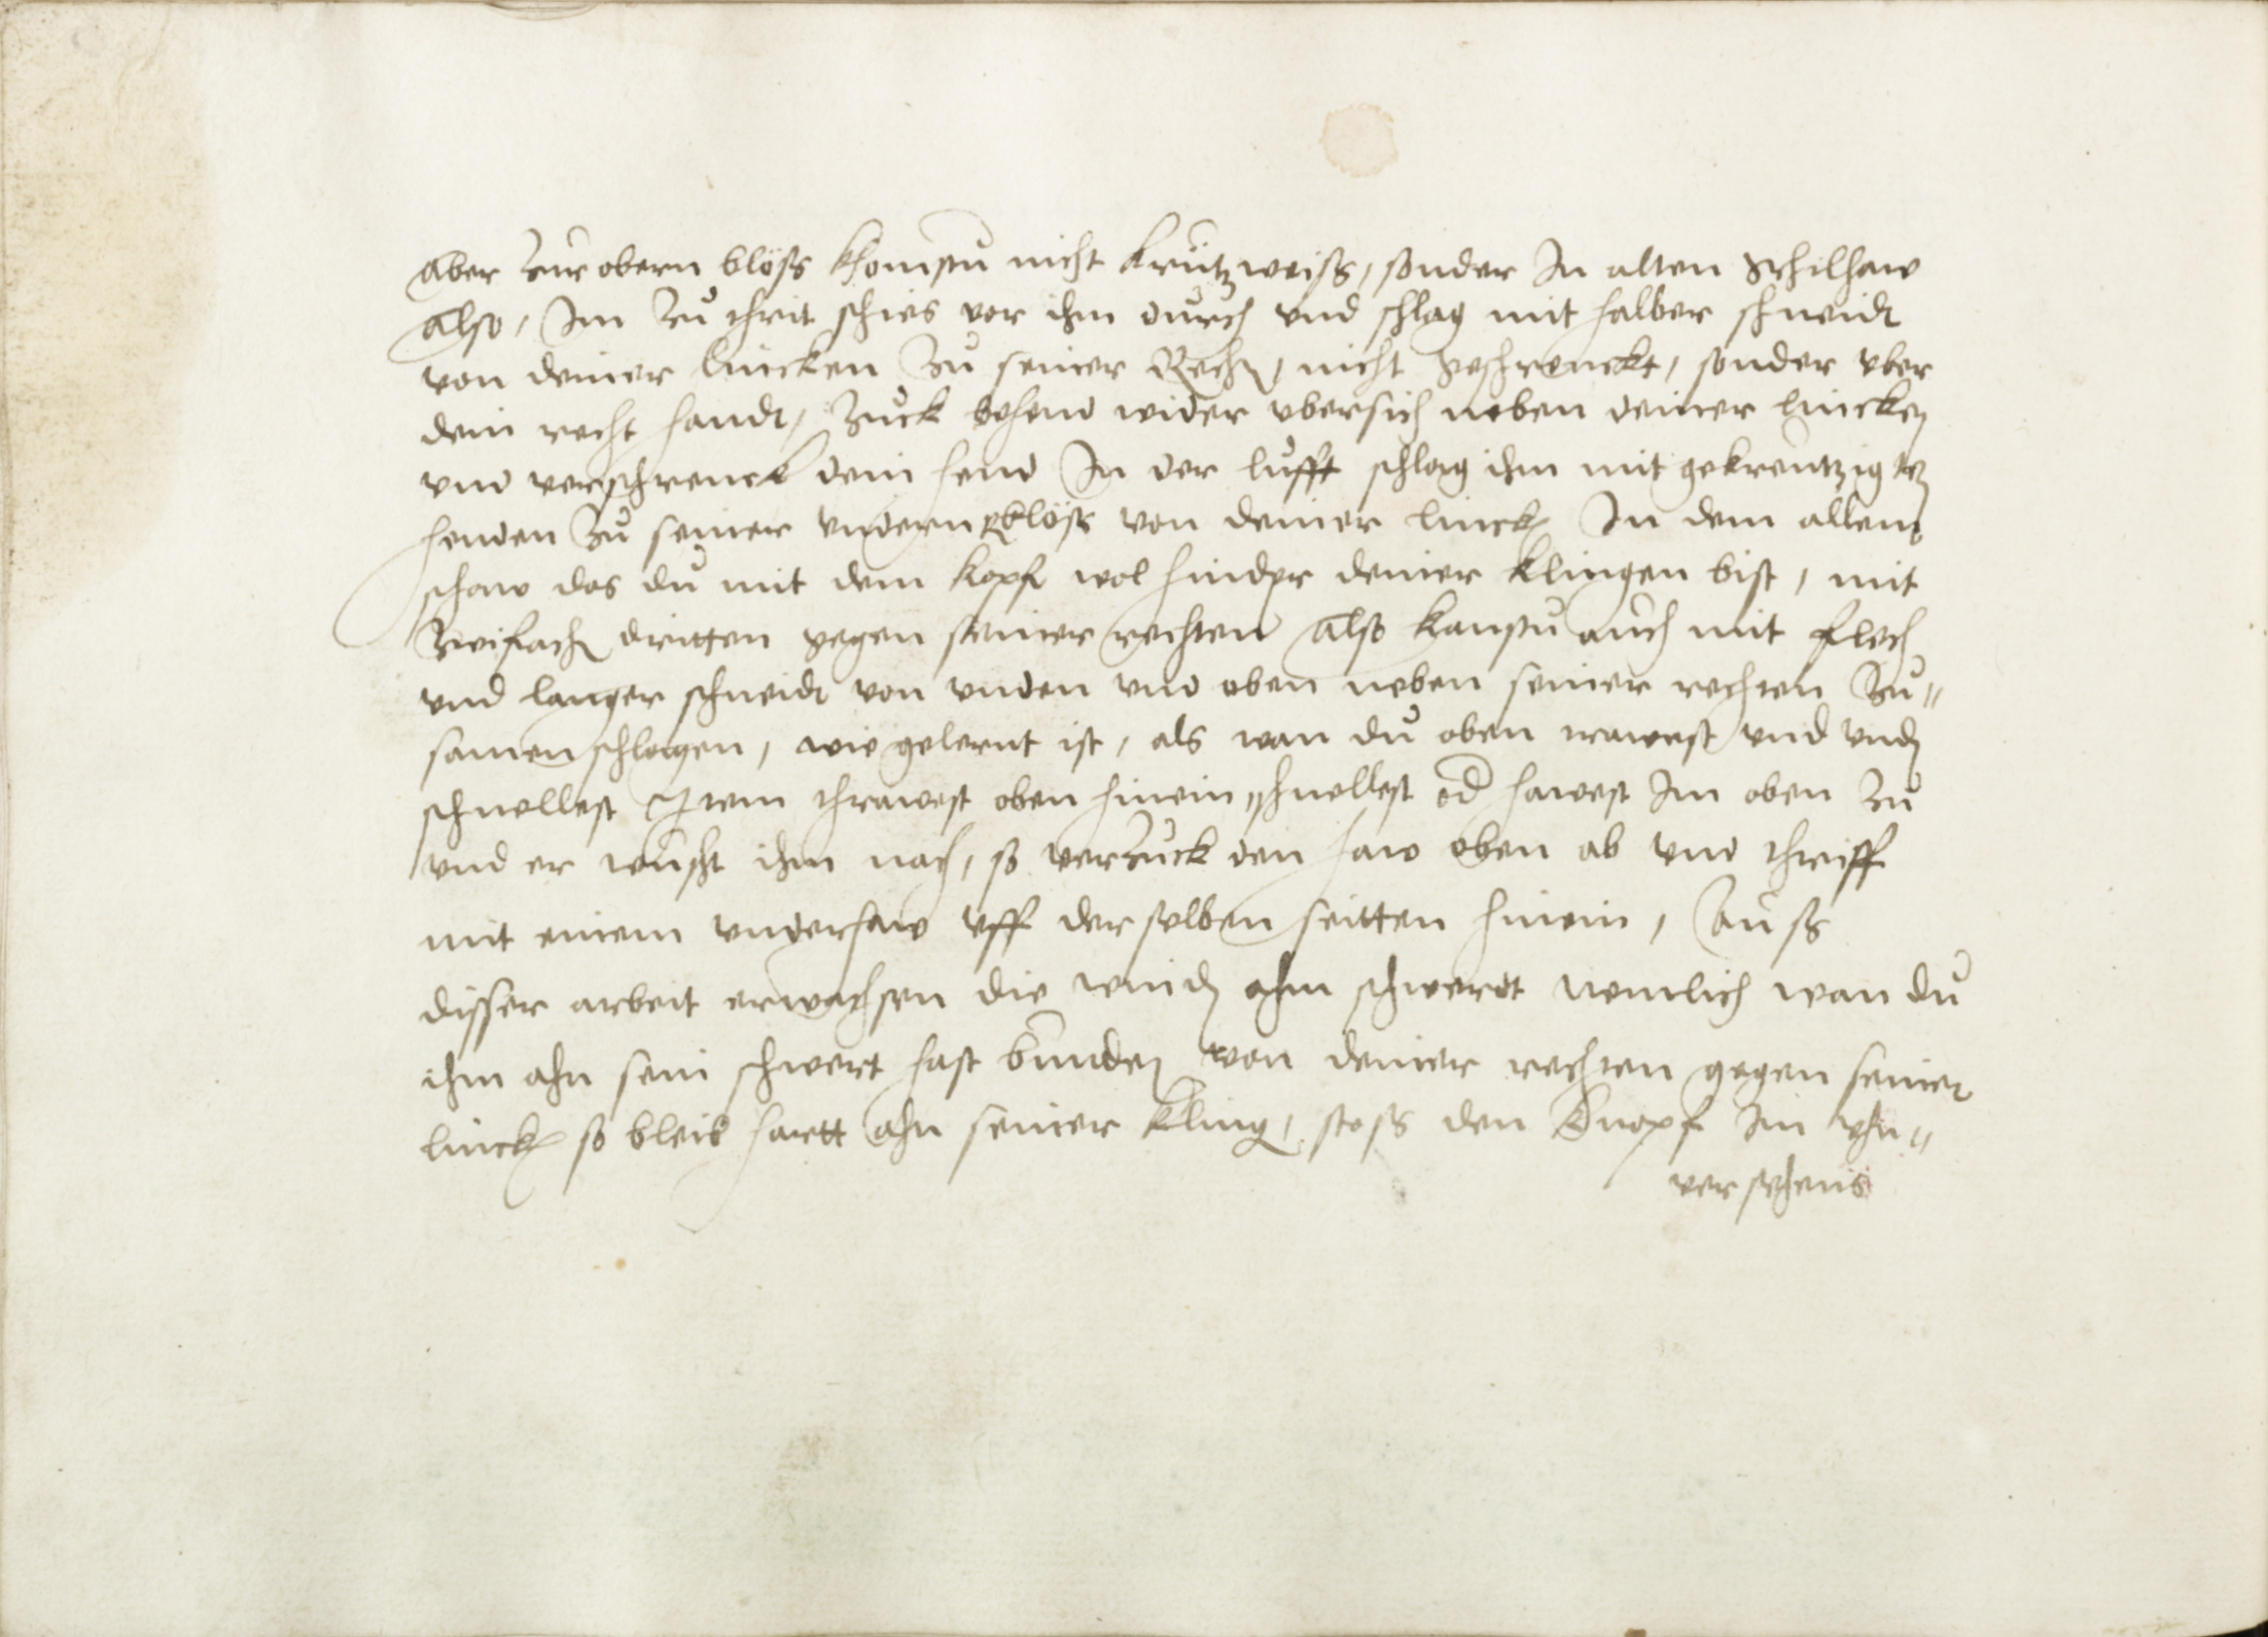 aber zur obern blöss khompstu nicht kreutzweiss, sonder In alten schilhaw
also, Im zu thrit schies vor ihm durch vnd schlag mit halber schneidt
von deiner lincken zu seiner Rechten, nicht geschrenckt, sonder vber
dein recht handt, zuck behend wider vbersich neben deiner lincken
vnd verschrenck dein hend In der lufft schlag ihm mit gekreutzigten
henden zu seiner vndern blöss von deiner lincken In dem allem
schaw das du mit dem kopf wol hinder deiner klingen bist, mit
zweifachen dritten gegen seiner rechten also kanstu auch mit flech
vnd langer schneidt von vnden vnd oben neben seiner rechten zu"
samen schlagen, wie gelernt ist, als wan du oben trawest vnd vnden
schnellest Item thrawest oben hinein schnellest od hawest Im oben zu
vnd er wuscht ihm nach, so verzuck den haw oben ab vnd thriff
mit einem vnderhaw vff der selben seitten hinein, auss
disser arbeit erwachsen die winden ahm schwerdt nemlich wan du
ihm ahn sein schwert hast bunden von deiner rechten gegen seiner
lincken so bleib hartt ahn seiner kling, stoss den knopf Im vhn"
versehens